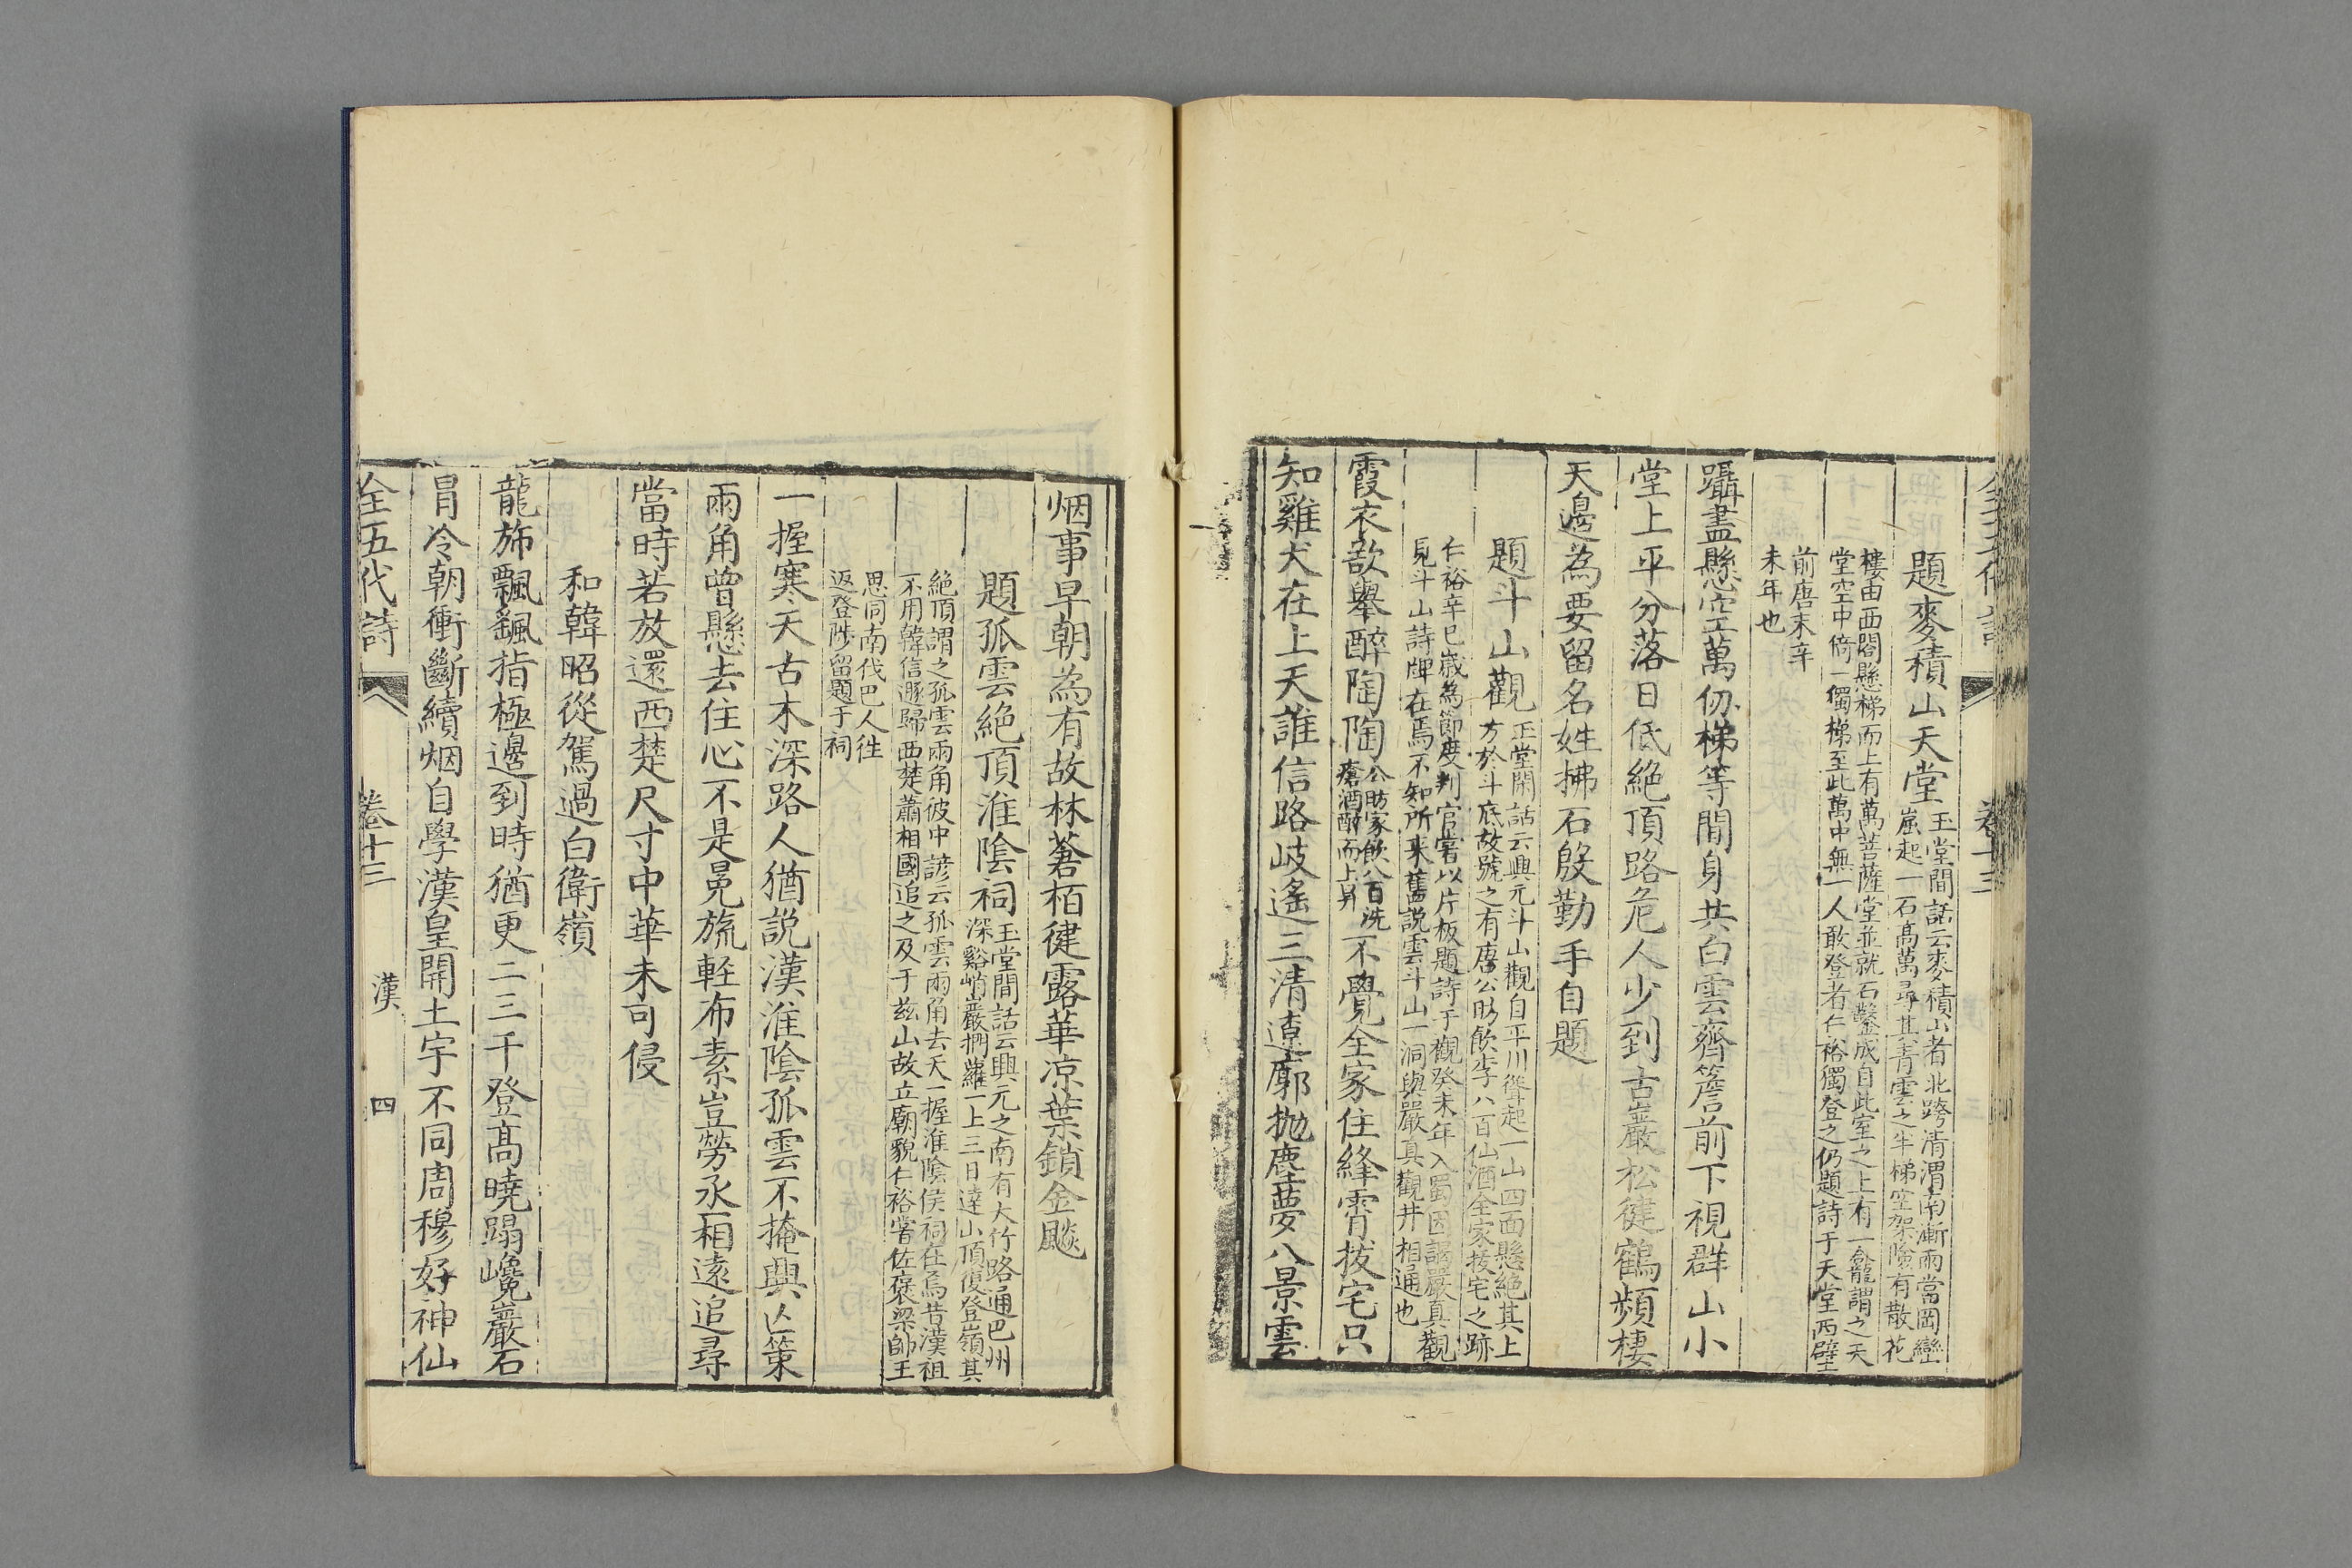 題麥積山天堂
玉堂閒話云麥積山者北跨清渭南漸兩當岡巒
崛起一石髙萬尋其青雲之半梯空架險有散花
樓由西閣懸梯而上有萬菩薩堂並就石鑿成自此室之上有一龕謂之天
堂空中倚一獨梯至此萬中無一人敢登者仁裕獨登之仍題詩于天堂西壁
前唐末辛
未年也
躡盡懸空萬仞梯等閒身共白雲齊簷前下視群山小
堂上平分落日低絶頂路危人少到古巖松健鶴頻棲
天邊為要留名姓拂石殷勤手自題
題斗山觀
玉堂閑話云興元斗山觀自平川聳起一山四面懸絶其上
方於斗底故號之有唐公昉飲李八百仙酒全家拔宅之跡
仁裕辛巳歳為節度判官嘗以片板題詩于觀癸未年入蜀因謁嚴真觀
見斗山詩牌在焉不知所来舊説雲斗山一洞與嚴真觀井相通也
霞衣欲舉醉陶陶
公昉家飲八百洗
瘡酒醉而上昇
不覺全家住絳霄拔宅只
知雞犬在上天誰信路岐遙三清遼廓抛塵夢八景雲
烟事早朝為有故林蒼栢健露華凉葉鎖金飈
題孤雲絶頂淮陰祠
玉堂閒話云興元之南有大竹路通巴州
深谿峭巖捫蘿一上三日達山頂復登嶺其
絶頂謂之孤雲兩角彼中諺云孤雲兩角去天一握淮陰侯祠在焉昔漢祖
不用韓信遯歸西楚蕭相國追之及于兹山故立廟貌仁裕嘗佐褒梁帥王
思同南伐巴人徃
返登陟留題于祠
一握寒天古木深路人猶説漢淮陰孤雲不掩興亾策
兩角曾懸去住心不是冕旒軽布素豈勞丞相遠追尋
當時若放還西楚尺寸中華未可侵
和韓昭從駕過白衛嶺
龍斾飄飖指極邊到時猶更二三千登髙曉蹋巉巖石
冐冷朝衝斷續烟自學漢皇開土宇不同周穆好神仙
全五代詩
卷十三
漢
四